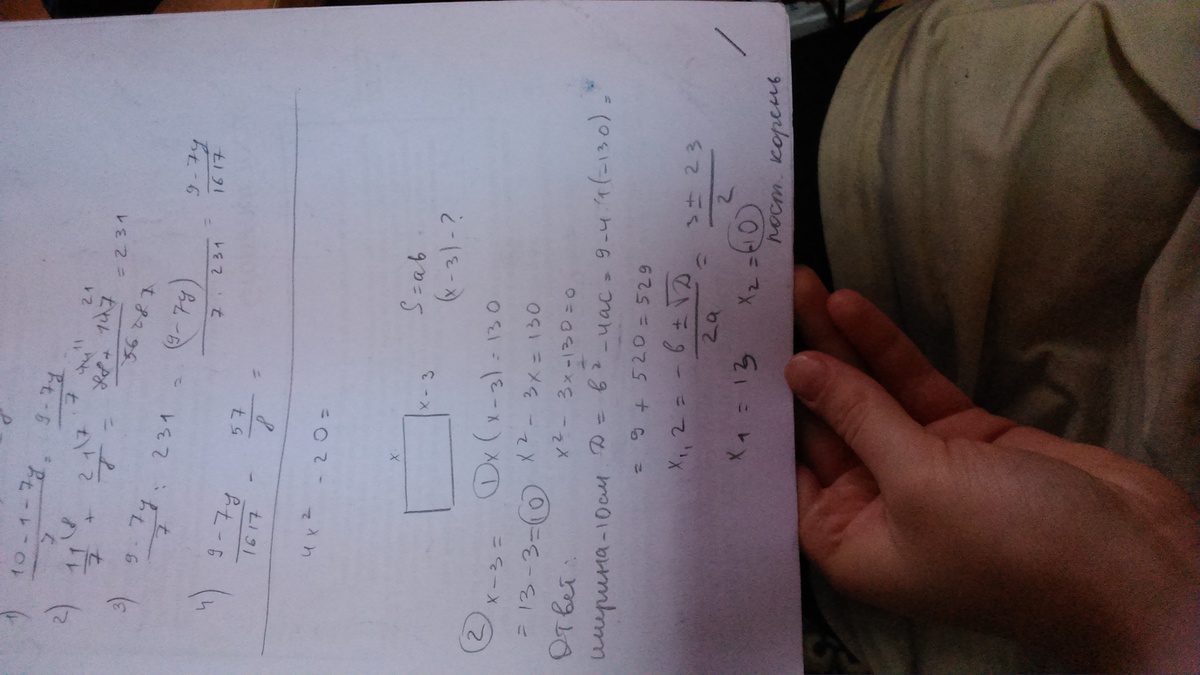 1) (10 - 1 - 7y)/7 = (9 - 7y)/7
2) 11/7 + 21/8 = = 231
3) (9 - 7y)/7 : 231 = (9 - 7y)/(7 · 231) = (9 - 7y)/1617
4) (9 - 7y)/1617 - 57/8 =
4x² - 20 =
x
x - 3
S = ab
(x - 3) - ?
① x(x - 3) = 130
x² - 3x = 130
x² - 3x - 130 = 0
② x - 3 =
= 13 - 3 = 10
Ответ:
ширина - 10 см.
D = b² - 4ac = 9 - 4 · 1(-130) =
= 9 + 520 = 529
x1,2 = (-b ± √D)/2a = (3 ± 23)/2
x1 = 13 x2 = -10
пост. корень